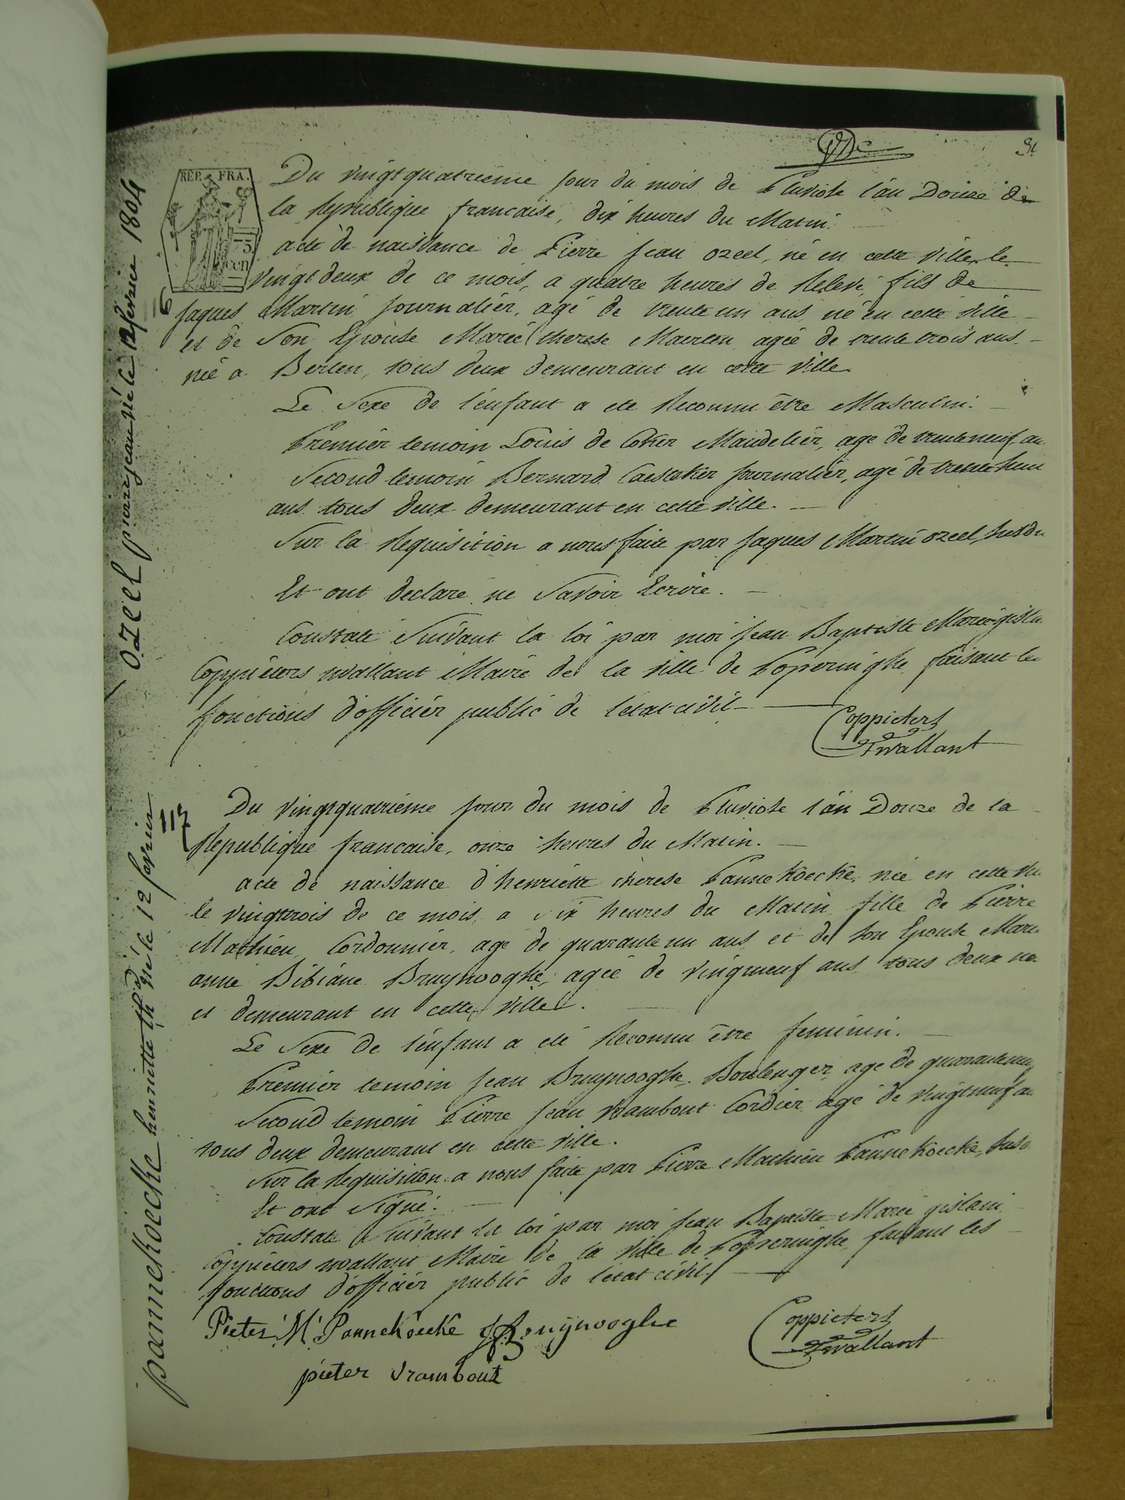 REP. FRA.
75
CEN
Du vingtquatrieme jour du mois de Pluviose l'an Douze de
la Republique francaise, dix heures du Matin.
acte de naissance de Pierre Jean ozeel, né en cette ville, le
vingt deux de ce mois, a quatre heures de Relevé, fils de
Jaques Martin Journalier, agé de trente un ans né en cette ville
et de Son Epouse Marie therese Maerten agée de trente trois ans
née a Berten, tous deux demeurant en cette ville
Le Sexe de l'enfant a eté Reconnu être Masculin.
Premier temoin Louis de Cotter Mandelier, age de trenteneuf an
Second temoin Bernard Caestekier Journalier, agé de trente
ans tous deux demeurant en cette ville.
Sur la Requisition a nous faite par Jaques Martin ozeel, susd
Et ont declaré ne Savoir Ecrire.
Constaté Suivant la loi par moi Jean Baptiste Marie
Coppieters wallant Maire de la ville de Poperinghe faisant les
fonctions d'officier public de l'etat civil
Coppieters
wallant
ozeel pierre jean né le 12 fevrier 1804
117
Du vingtquatrieme jour du mois de Pluviose l'an Douze de la
Republique francaise, onze heures du Matin.
acte de naissance d'henriette therese Pannekoecke, née en cette
le vingttrois de ce mois a Six heures du Matin fille de Pierre
Mathieu Cordonnier, age de quarante un ans et de Son Epouse Mari
anne Bibiane Bruynooghe, agée de vingneuf ans tous deux né
et demeurant en cette ville.
Le Sexe de l'enfant a eté Reconnu être feminin.
Premier temoin Jean Bruynooghe Boulenger, age de
Second temoin Pierre Jean vrambout Cordier, agé de vingtneuf an
tous deux demeurant en cette ville.
Sur la Requisition a nous faite par Pierre Mathieu Pannekoecke, Sus
Et ont Signé.
Constaté Suivant la loi par moi Jean Baptiste Marie gislain
Coppieters wallant Maire de la ville de Poperinghe faisant les
fonctions d'officier public de l'etat civil
Pieter M Pannekoecke Bruynooghe
pieter vrambout
Coppieters
wallant
pannekoecke henriette th née le 12 fevrier